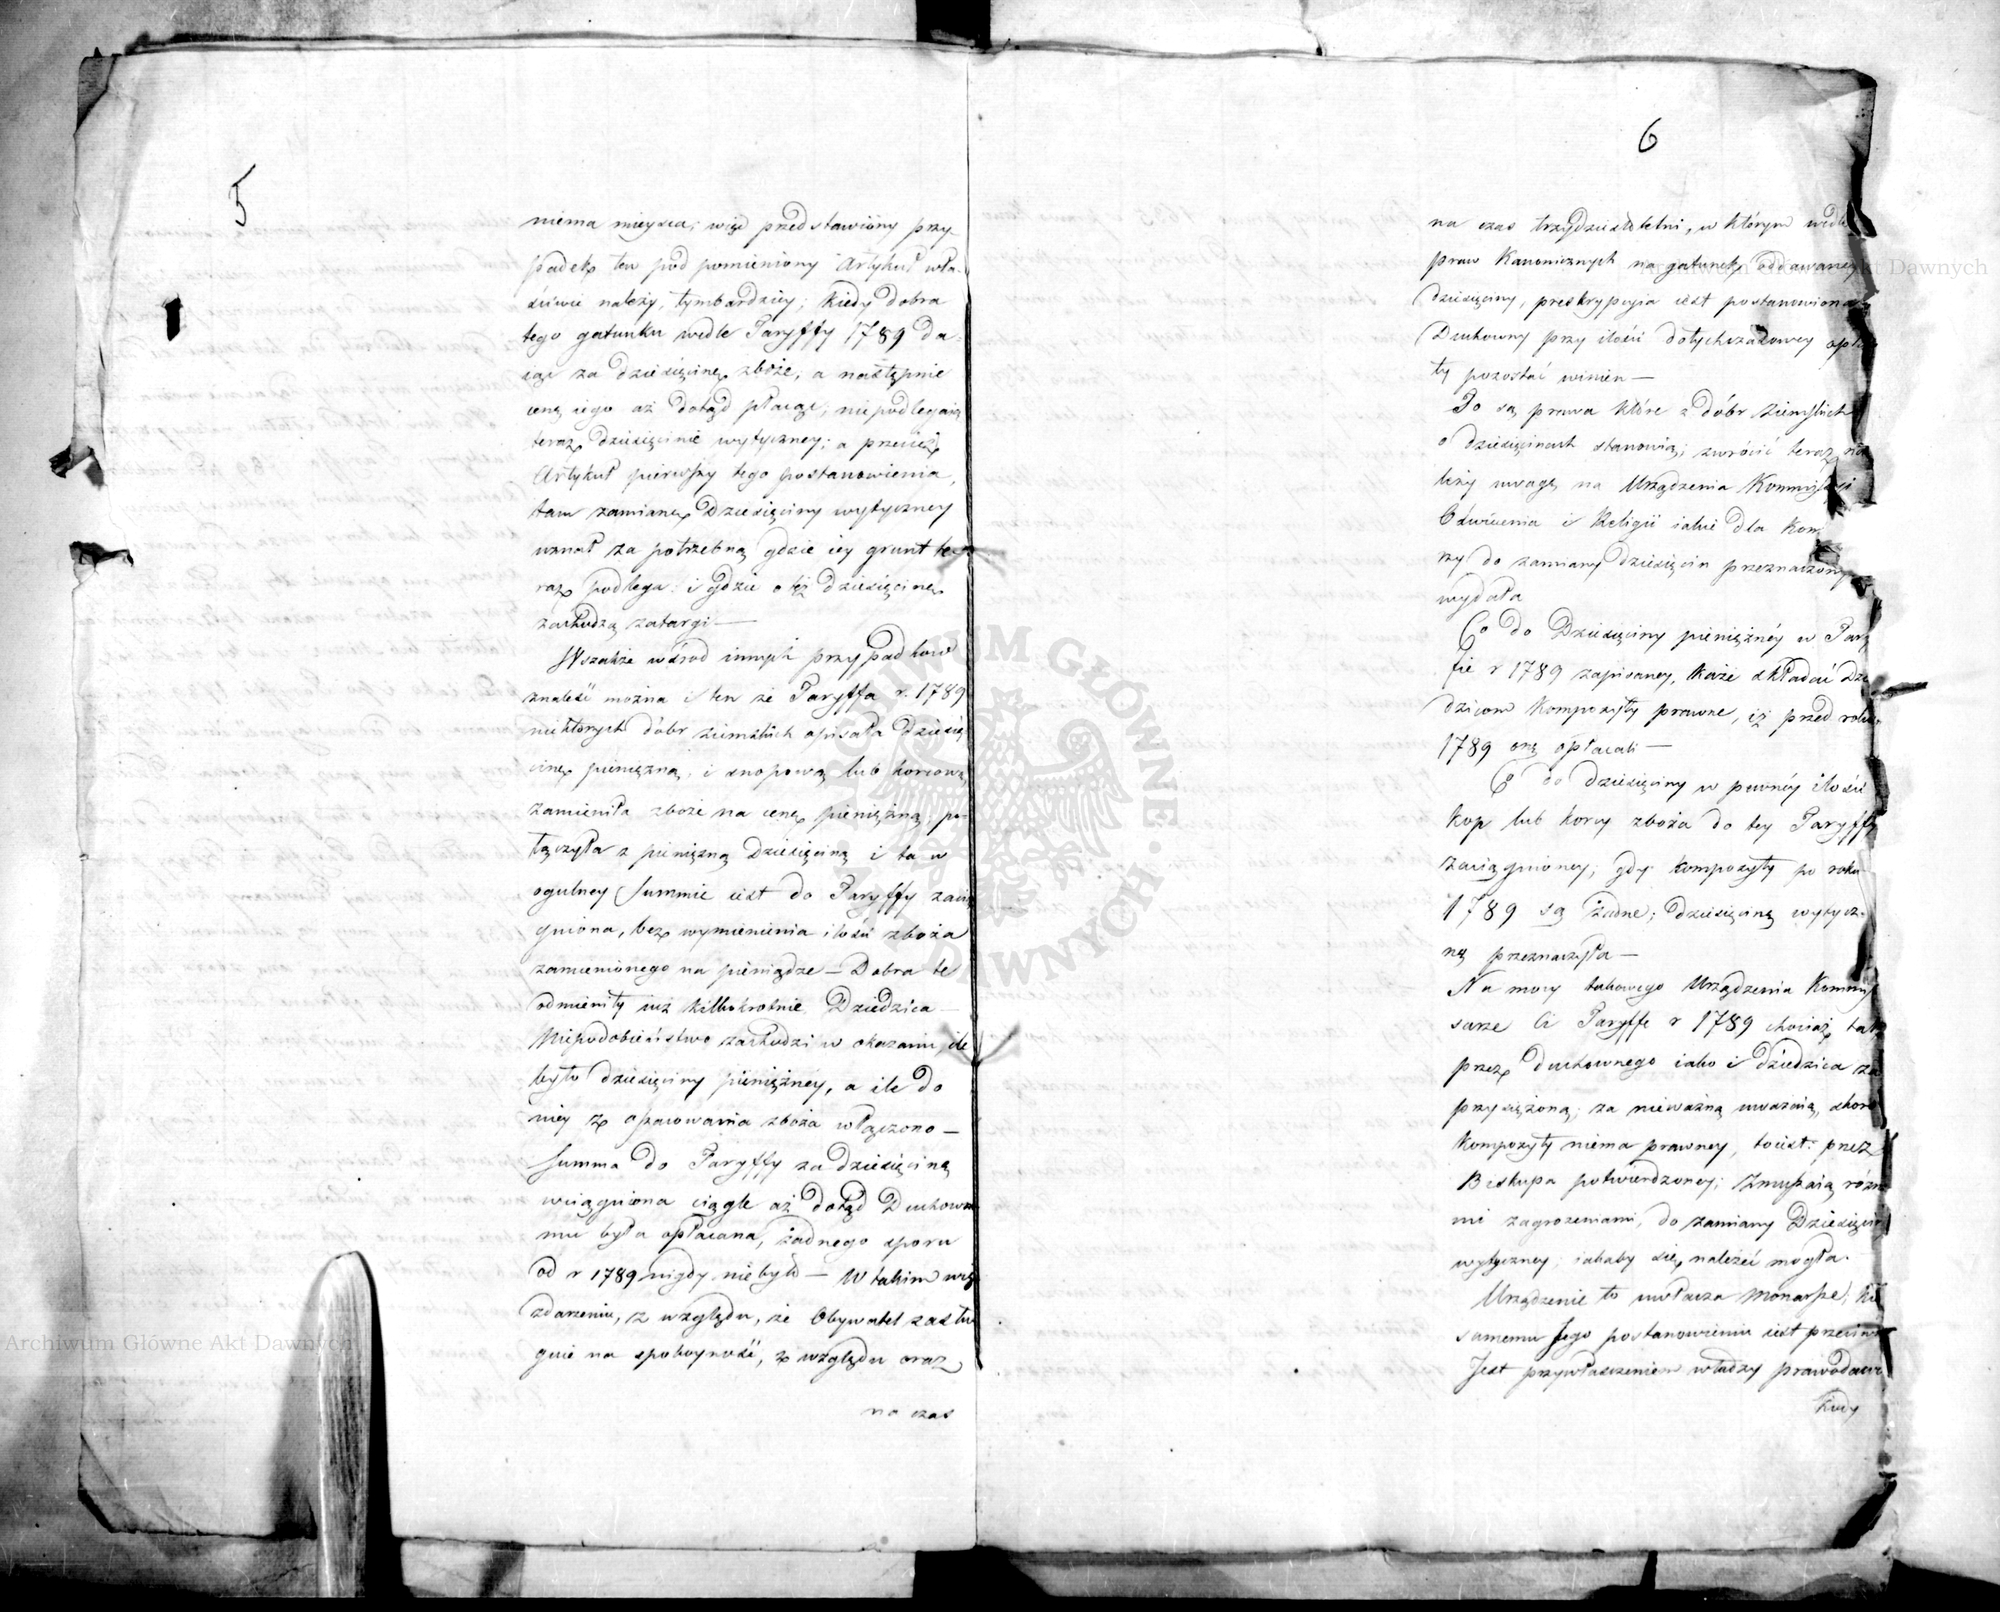 5
niema mieysca; więc przedstawióny przy-
padek ten pod pomieniony Artykuł wła-
ściwie należy, tymbardziey; kiedy dobra
tego gatunku wedle Taryffy 1789 da-
iąc za dziesięcinę zboże, a następnie
cenę iego aż dotąd płacąc, niepodlegaią
teraz dziesięcinie wytyczney; a przecież
Artykuł pierwszy tego postanowienia,
tam zamianę Dziesięciny wytyczney
uznał za potrzebną gdzie iey grunt te-
raz podlega: i gdzie o tęż dziesięcinę
zachodzą zatargi —
Wszakże wśrod innych przypadkow
znaleść można i ten że Taryffa r. 1789
niektorych dóbr ziemskich opisała dziesię
cinę pieniężną, i snopową lub korcową
zamieniła zboże na cenę pieniężną, po-
łączyła z pieniężną Dziesięciną i ta w
ogulney Summie iest do Taryffy zacią
gniona, bez wymienienia ilości zboża
zamienionego na pieniądze — Dobra te
odmieniły iuż kilkokrotnie Dziedzica —
Niepodobieństwo zachodzi w okazaniu, ile
było dziesięciny pieniężney, a ile do
niey z opacowania zboża włączono —
Summa do Taryffy za dziesięcinę
wciągniona ciągle aż dotąd Duchowne
mu była opłacana, żadnego sporu
od r 1789 nigdy nie było — W takim więc
zdarzeniu, z względu, że Obywatel zasłu
guie na spokoyność, z względu oraz
na czas
6
na czas trzydziestoletni, w którym wedle
praw Kanonicznych na gatunek oddawaney
dziesięciny, preskrypcyia iest postanowiona
Duchowny przy ilości dotychczasowey opła
ty pozostać winien —
To są prawa które z dóbr ziemskich
o dziesięcinach stanowią; zwrócić teraz na
leży uwagę na Urządzenia Kommissyi
Oświecenia i Religii iakie dla Kom
rzy do zamiany dziesięcin przeznaczonych
wydała
Co do Dziesięciny pieniężnéy w Tary
fie r 1789 zapisaney, każe składać Dzie
dzicom kompozyty prawne, iż przed rokiem
1789 onę opłacali —
Co do dziesięciny w pewnéy ilości
kop lub korcy zboża do tey Taryffy
zaciągnioney; gdy kompozyty po roku
1789 są żadne; dziesięcinę wytycz-
ną przeznaczyła —
Na mocy takowego Urządzenia Kommis
sarze Ci Taryffę r 1789 chociaż tak
przez duchownego iako i dziedzica za
przysiężoną; za nieważną uważaią, skoro
kompozyty niema prawney, toiest: przez
Biskupa potwierdzoney; Zmuszaią różne
mi zagrożeniami, do zamiany Dziesięciny
wytyczney; iakaby się należeć mogła.
Urządzenie to uwłacza Monarsze;
samemu Jego postanowieniu iest przeciwne
Jest przywłaszczeniem władzy prawodawc
Kiedy
Archiwum Główne Akt Dawnych
Archiwum Główne Akt Dawnych
ARCHIWUM GŁÓWNE AKT DAWNYCH